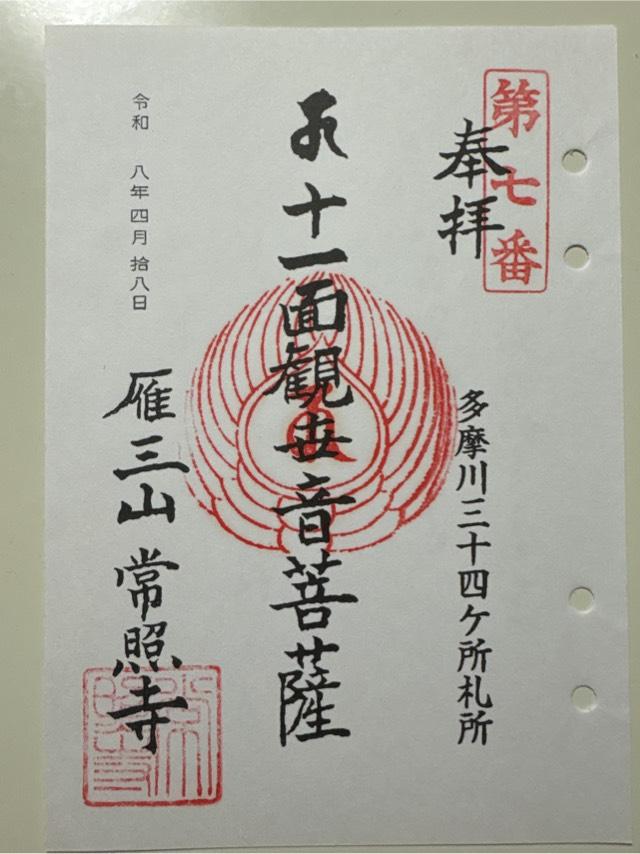 第七番
奉拝
多摩川三十四ケ所札所
十一面観世音菩薩
雁三山 常照寺
令和 八年四月拾八日